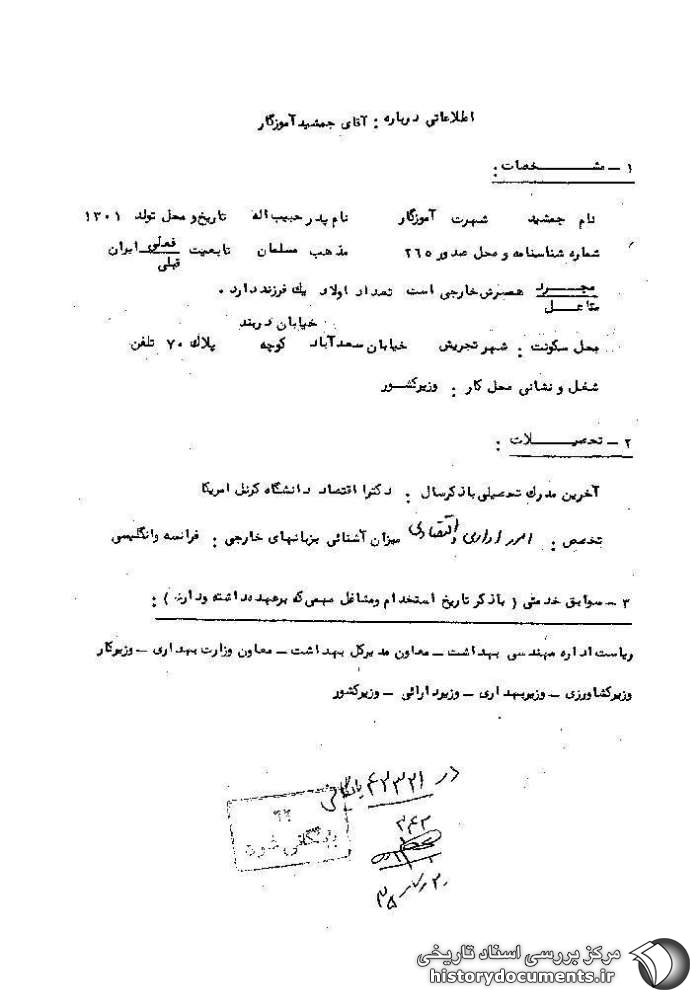 اطلاعاتی درباره : آقای جمشید آموزگار
۱ - مشخصات :
نام جمشید شهرت آموزگار نام پدر حبیب اله تاریخ و محل تولد ۱۳۰۱
شماره شناسنامه و محل صدور ۲۶۵ مذهب مسلمان تابعیت فعلی ایران
قبلی
مجرد همسرش خارجی است تعداد اولاد یک فرزند دارد .
متاهل
خیابان دربند
محل سکونت : شهر تجریش خیابان سعدآباد کوچه پلاک ۷۰ تلفن
شغل و نشانی محل کار : وزیر کشور
۲ - تحصیلات :
آخرین مدرک تحصیلی با ذکر سال : دکترا اقتصاد دانشگاه کرنل امریکا
تخصص : امور اداری و اقتصادی میزان آشنائی بزبانهای خارجی : فرانسه و انگلیسی
۳ - سوابق خدمتی ( با ذکر تاریخ استخدام و مشاغل مهمی که برعهده داشته و دارند ) :
ریاست اداره مهندسی بهداشت - معاون مدیرکل بهداشت - معاون وزارت بهداری - وزیر کار
وزیر کشاورزی - وزیر بهداری - وزیر دارائی - وزیر کشور
در ۴۲۳۲۱ بایگانی
بایگانی شود
۳۴۳
۳۵
مرکز بررسی اسناد تاریخی
historydocuments.ir